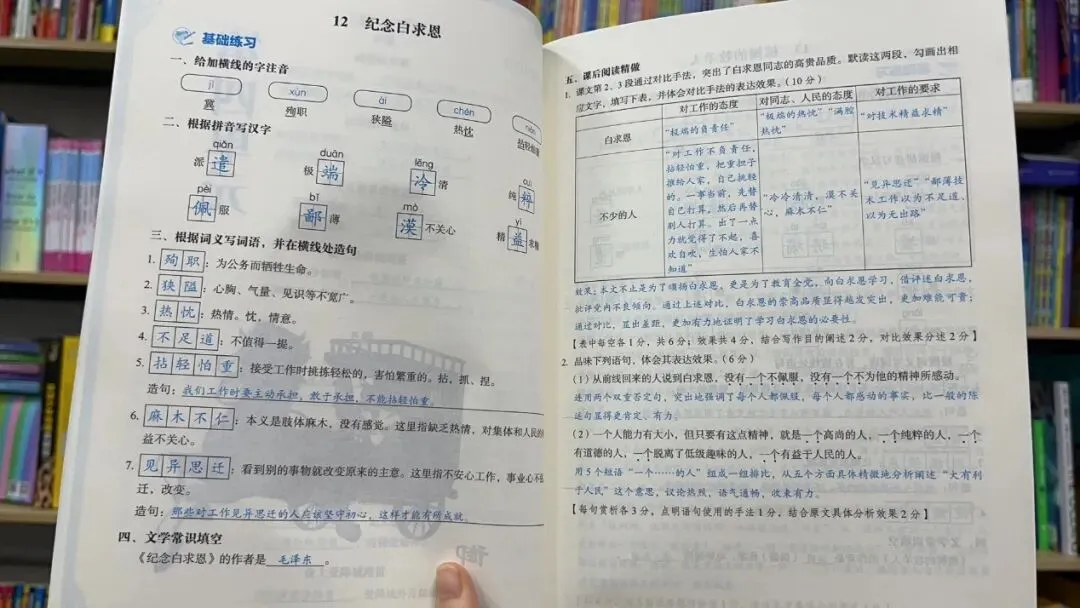 12 纪念白求恩
基础练习
一、给加横线的字注音
jì xùn ài chén niān
冀 殉职 狭隘 热忱 拈轻怕重
二、根据拼音写汉字
qiǎn duān lěng cuì
派遣 极端 冷清 纯粹
pèi bǐ mò yì
佩服 鄙薄 漠不关心 精益求精
三、根据词义写词语，并在横线处造句
1. 殉职：为公务而牺牲生命。
2. 狭隘：心胸、气量、见识等不宽广。
3. 热忱：热情。忱，情意。
4. 不足道：不值得一提。
5. 拈轻怕重：接受工作时挑拣轻松的，害怕繁重的。拈，抓、捏。
造句：我们工作时要主动承担，敢于承担，不能拈轻怕重。
6. 麻木不仁：本义是肢体麻木，没有感觉。这里指缺乏热情，对集体和人民的
益不关心。
7. 见异思迁：看到别的事物就改变原来的主意。这里指不安心工作，事业心不
迁，改变。
造句：那些对工作见异思迁的人应该坚守初心，这样才能有所成就。
四、文学常识填空
《纪念白求恩》的作者是 毛泽东 。
五、课后阅读精做
1. 课文第2、3段通过对比手法，突出了白求恩同志的高贵品质。默读这两段，勾画出相
应文字，填写下表，并体会对比手法的表达效果。（10分）
对工作的态度 对同志、人民的态度 对工作的要求
白求恩 “极端的负责任” “极端的热忱”“满腔
热忱” “对技术精益求精”
不少的人
“对工作不负责任，
拈轻怕重，把重担子
推给人家，自己挑轻
的。一事当前，先替
自己打算，然后再替
别人打算。出了一点
力就觉得了不起，喜
欢自吹，生怕人家不
知道”
“冷冷清清，漠不关
心，麻木不仁”
“见异思迁”“鄙薄技
术工作以为不足道，
以为无出路”
效果：本文不止是为了颂扬白求恩，更是为了教育全党，向白求恩学习，借评述白求恩，
批评党内不良倾向。通过上述对比，白求恩的崇高品质显得越发突出，更加难能可贵；
通过对比，显出差距，更加有力地证明了学习白求恩的必要性。
【表中每空各1分，共6分；效果共4分，结合写作目的阐述2分，对比效果分述2分】
2. 品味下列语句，体会其表达效果。（6分）
（1）从前线回来的人说到白求恩，没有一个不佩服，没有一个不为他的精神所感动。
连用两个双重否定句，突出地强调了每个人都佩服，每个人都感动的事实，比一般的陈
述句显得更肯定、有力。
（2）一个人能力有大小，但只要有这点精神，就是一个高尚的人，一个纯粹的人，一个
有道德的人，一个脱离了低级趣味的人，一个有益于人民的人。
用5个短语“一个……的人”组成一组排比，从五个方面具体精微地分析阐述“大有利
于人民”这个意思，议论热烈，语气通畅，收束有力。
【每句赏析各3分，点明语句使用的手法1分，结合原文具体分析效果2分】